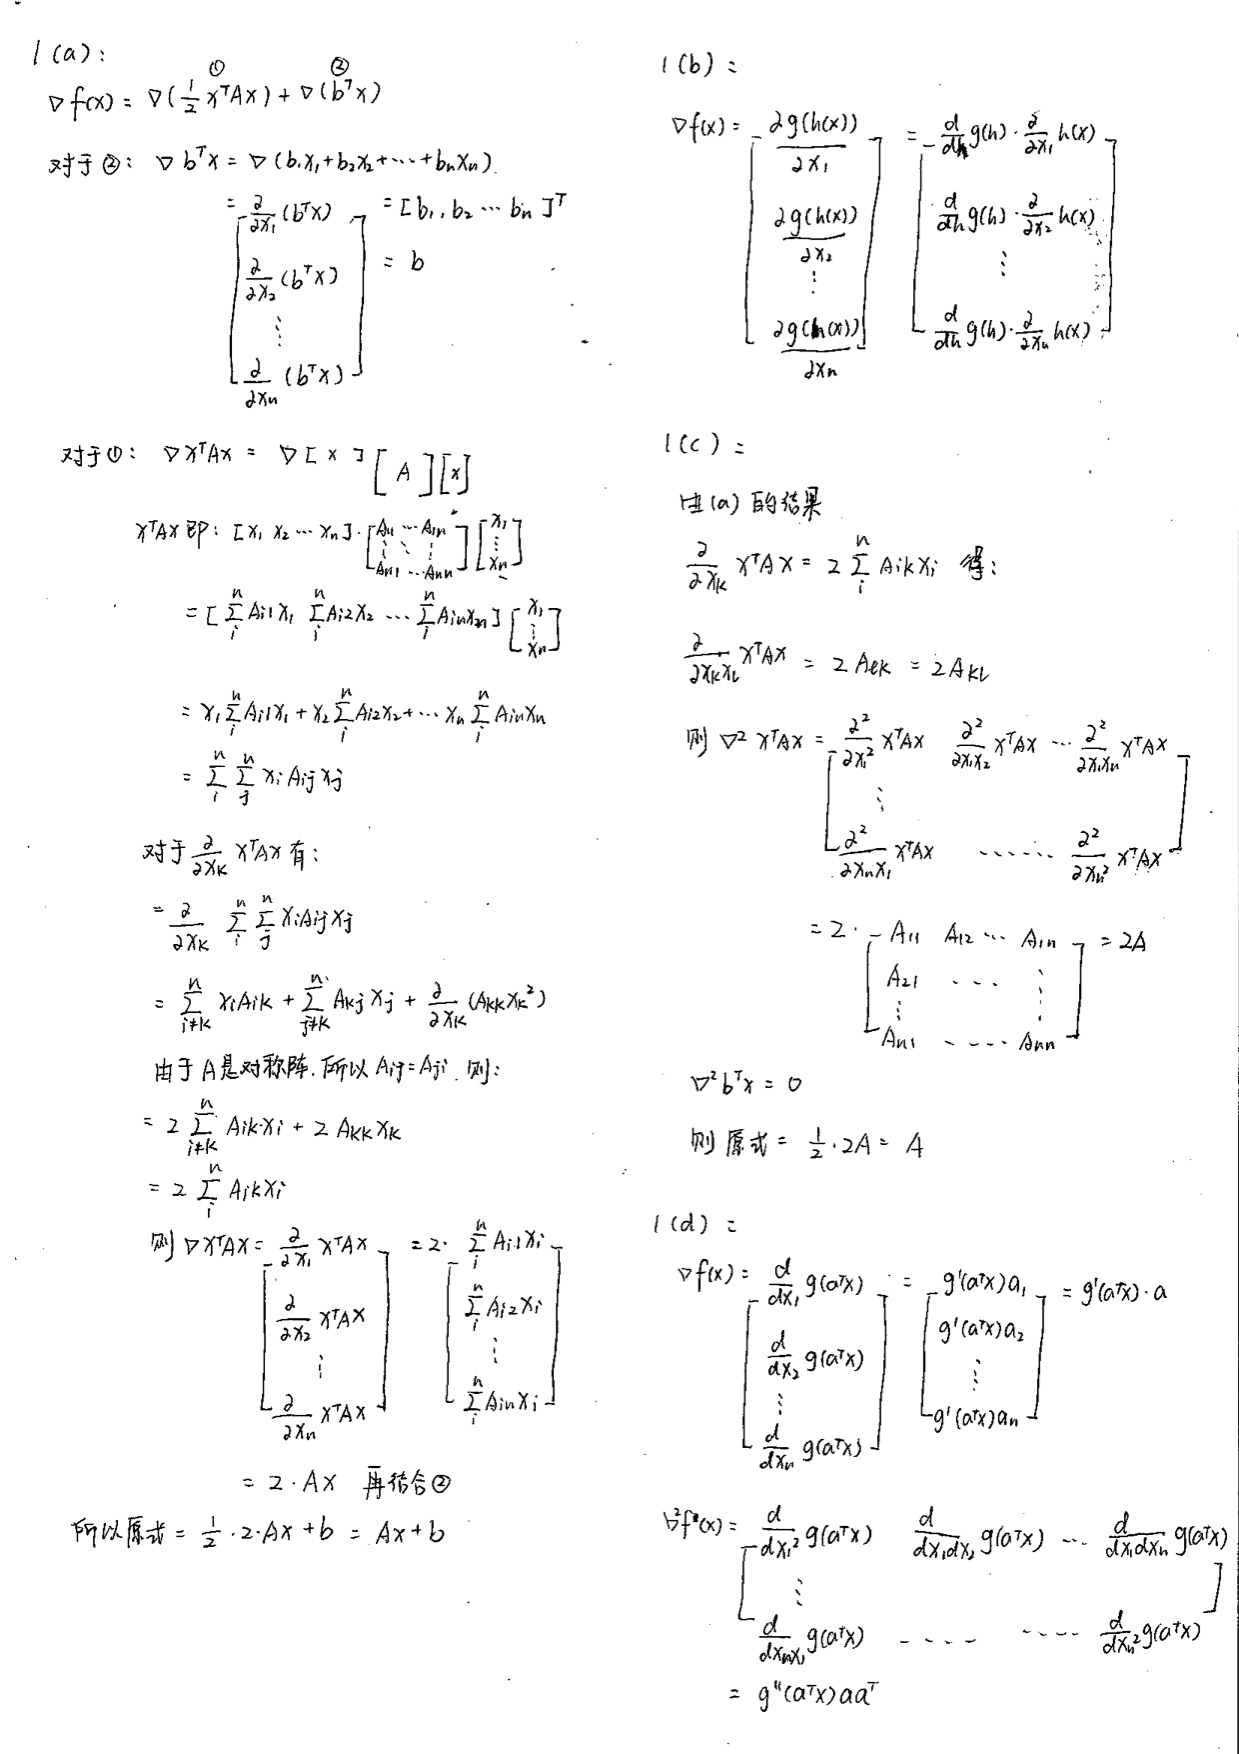 1(a):
① ②
∇f(x) = ∇(½ xᵀAx) + ∇(bᵀx)
对于②: ∇ bᵀx = ∇ (b₁x₁+b₂x₂+⋯+bₙxₙ).
= [ ∂/∂x₁ (bᵀx) = [b₁, b₂ ⋯ bₙ]ᵀ
∂/∂x₂ (bᵀx) = b
⋮
∂/∂xₙ (bᵀx) ]
对于①: ∇xᵀAx = ∇ [ x ] [ A ] [x]
xᵀAx 即: [x₁ x₂ ⋯ xₙ]·[A₁₁ ⋯ A₁ₙ ⋮ ⋱ ⋮ Aₙ₁ ⋯ Aₙₙ] [x₁ ⋮ xₙ]
= [ Σᵢⁿ Aᵢ₁x₁ Σᵢⁿ Aᵢ₂x₂ ⋯ Σᵢⁿ Aᵢₙxₙ ] [x₁ ⋮ xₙ]
= x₁ Σᵢⁿ Aᵢ₁x₁ + x₂ Σᵢⁿ Aᵢ₂x₂ + ⋯ xₙ Σᵢⁿ Aᵢₙxₙ
= Σᵢⁿ Σⱼⁿ xᵢ Aᵢⱼ xⱼ
对于 ∂/∂xₖ xᵀAx 有:
= ∂/∂xₖ Σᵢⁿ Σⱼⁿ xᵢAᵢⱼxⱼ
= Σⁿ_{i≠k} xᵢAᵢₖ + Σⁿ_{j≠k} Aₖⱼxⱼ + ∂/∂xₖ (Aₖₖxₖ²)
由于A是对称阵, 所以 Aᵢⱼ=Aⱼᵢ 则:
= 2 Σⁿ_{i≠k} Aᵢₖxᵢ + 2 Aₖₖxₖ
= 2 Σᵢⁿ Aᵢₖxᵢ
则 ∇xᵀAx = [ ∂/∂x₁ xᵀAx = 2· [ Σᵢⁿ Aᵢ₁xᵢ
∂/∂x₂ xᵀAx Σᵢⁿ Aᵢ₂xᵢ
⋮ ⋮
∂/∂xₙ xᵀAx ] Σᵢⁿ Aᵢₙxᵢ ]
= 2·Ax 再结合②
所以原式 = ½·2·Ax + b = Ax + b
1(b):
∇f(x) = [ ∂g(h(x))/∂x₁ = [ d/dh g(h)·∂/∂x₁ h(x)
∂g(h(x))/∂x₂ d/dh g(h)·∂/∂x₂ h(x)
⋮ ⋮
∂g(h(x))/∂xₙ ] d/dh g(h)·∂/∂xₙ h(x) ]
1(c):
由(a)的结果
∂/∂xₖ xᵀAx = 2 Σᵢⁿ Aᵢₖxᵢ 得:
∂/∂xₖxₗ xᵀAx = 2Aₗₖ = 2Aₖₗ
则 ∇² xᵀAx = [ ∂²/∂x₁² xᵀAx ∂²/∂x₁x₂ xᵀAx ⋯ ∂²/∂x₁xₙ xᵀAx
⋮
∂²/∂xₙx₁ xᵀAx ⋯⋯ ∂²/∂xₙ² xᵀAx ]
= 2· [ A₁₁ A₁₂ ⋯ A₁ₙ = 2A
A₂₁ ⋯ ⋮
⋮
Aₙ₁ ⋯⋯ Aₙₙ ]
∇²bᵀx = 0
则原式 = ½·2A = A
1(d):
∇f(x) = [ d/dx₁ g(aᵀx) = [ g'(aᵀx)a₁ = g'(aᵀx)·a
d/dx₂ g(aᵀx) g'(aᵀx)a₂
⋮ ⋮
d/dxₙ g(aᵀx) ] g'(aᵀx)aₙ ]
∇²f(x) = [ d/dx₁² g(aᵀx) d/dx₁dx₂ g(aᵀx) ⋯ d/dx₁dxₙ g(aᵀx)
⋮
d/dxₙx₁ g(aᵀx) ⋯⋯ ⋯⋯ d/dxₙ² g(aᵀx) ]
= g''(aᵀx)aaᵀ